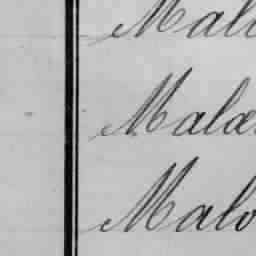 Malo
Malae
Malo